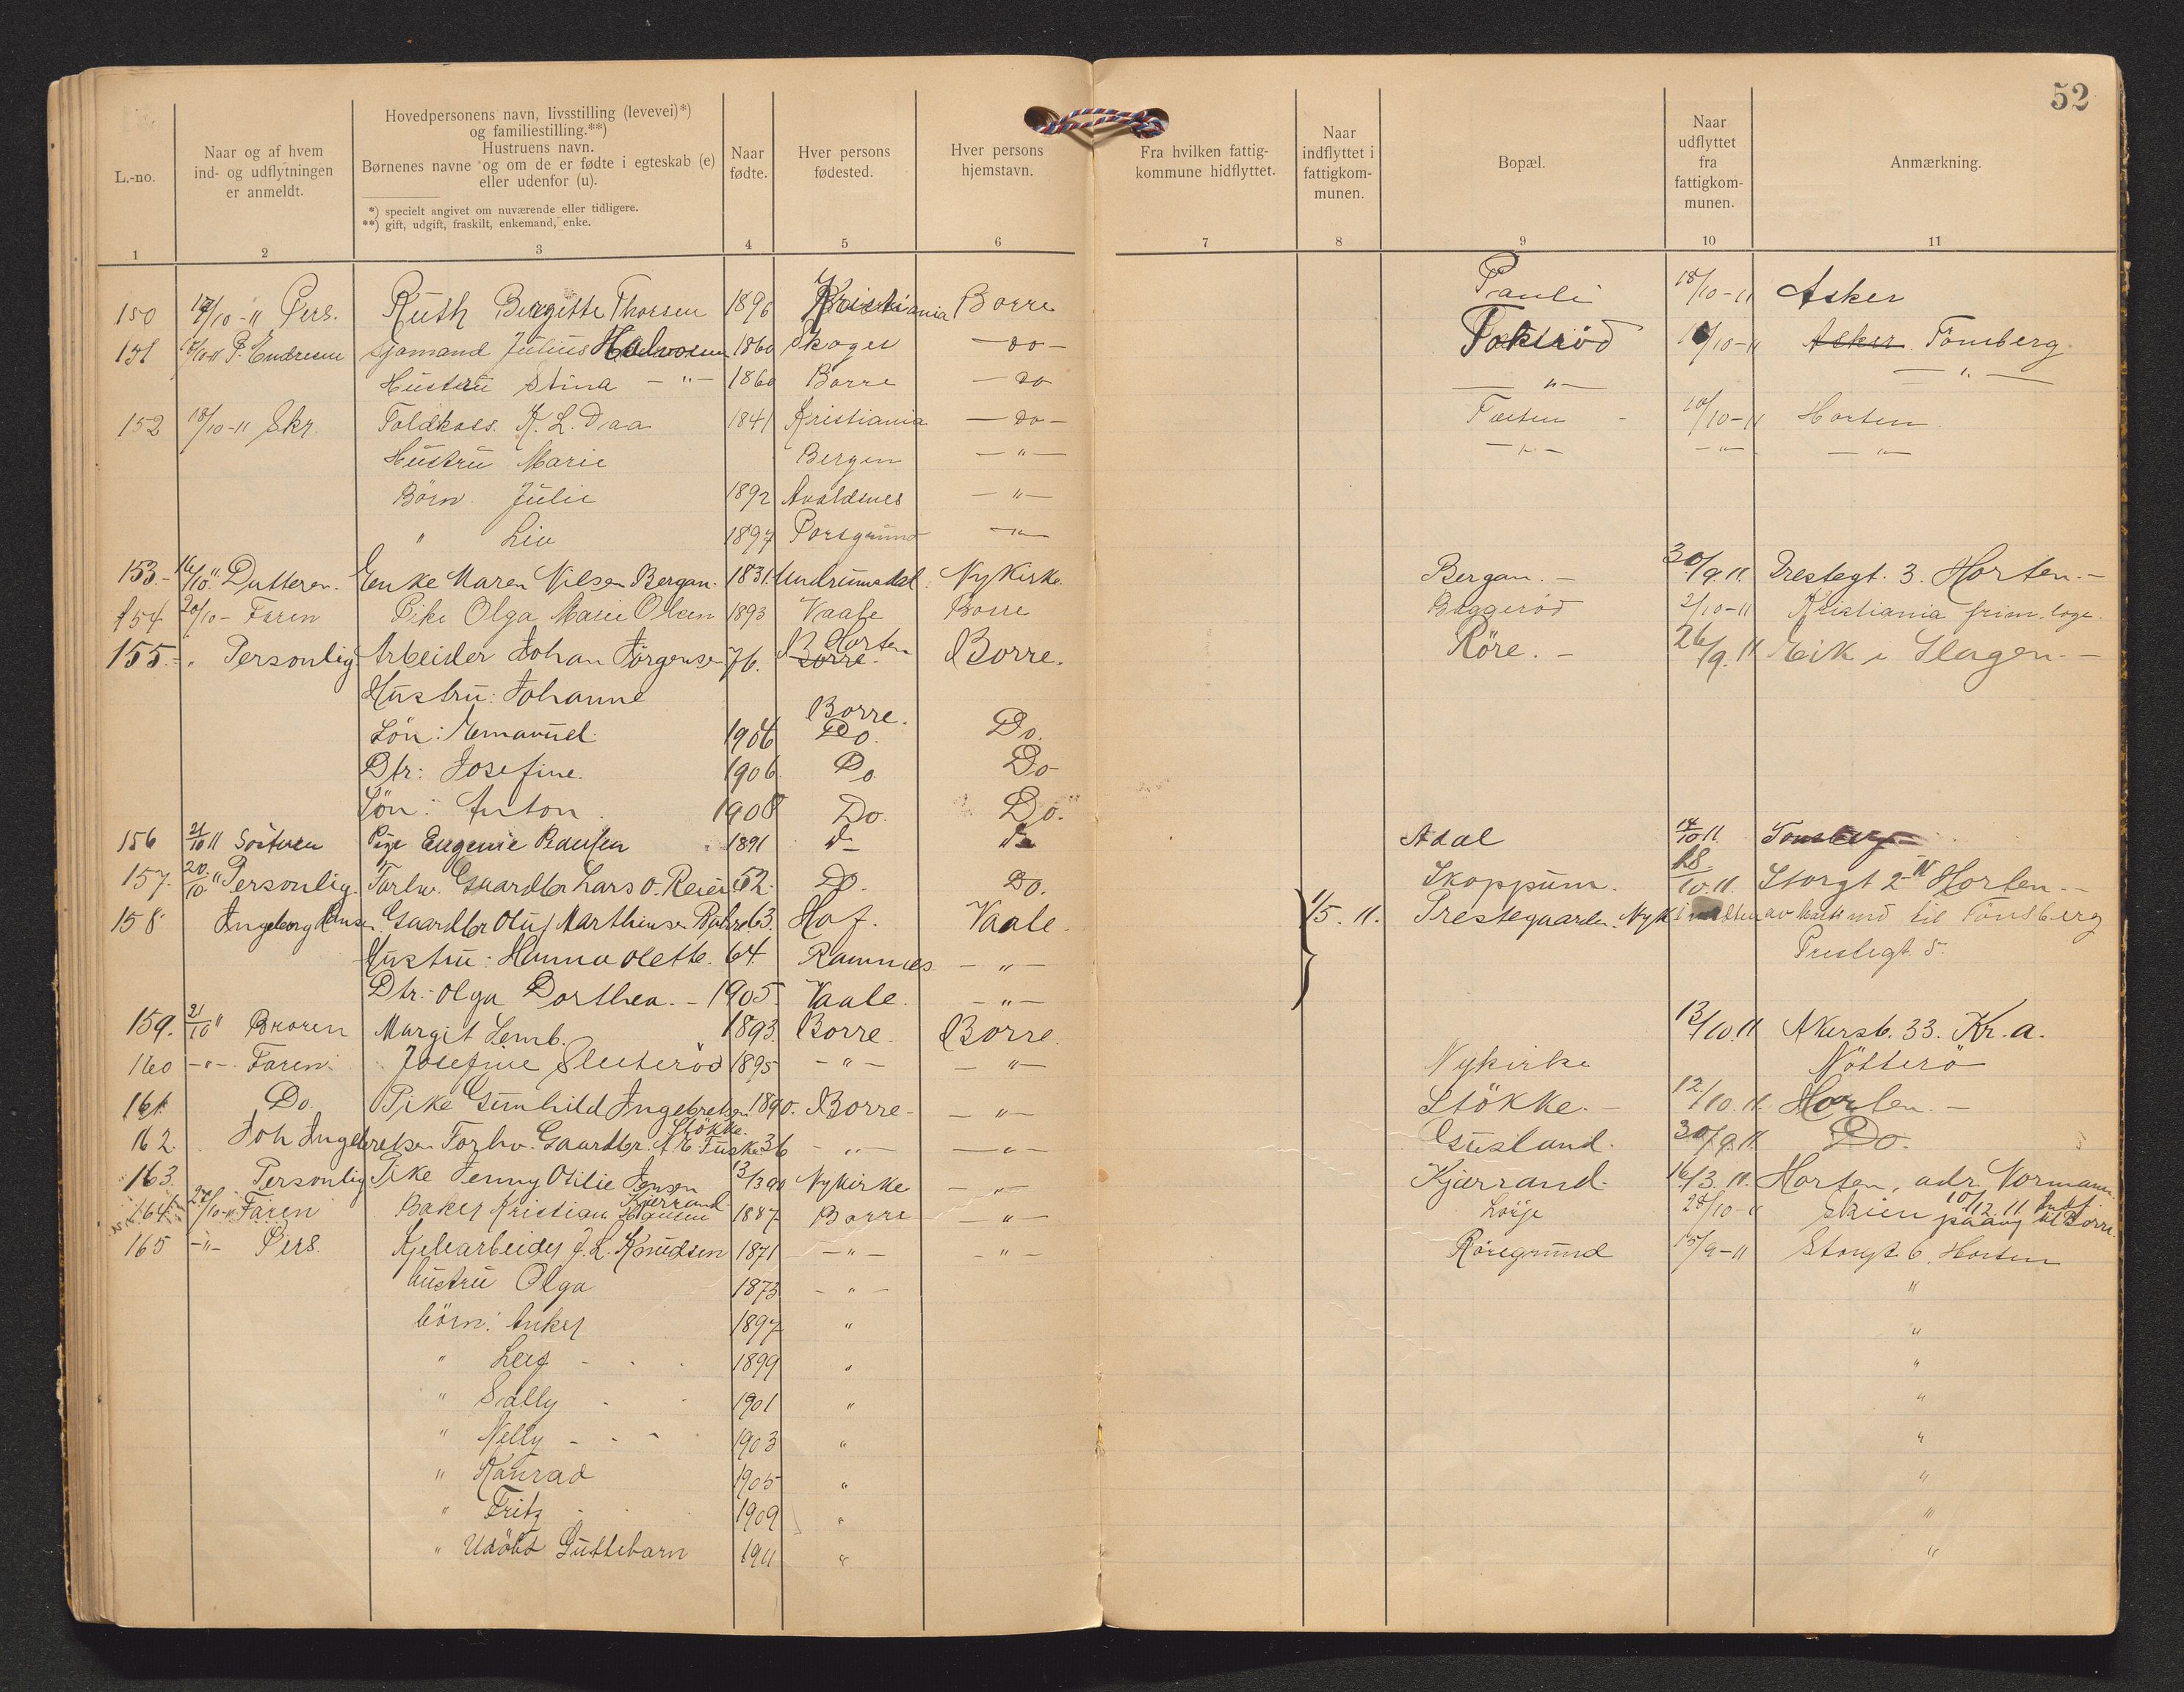 52
L.-no.
Naar og af hvem
ind- og udflytningen
er anmeldt.
Hovedpersonens navn, livsstilling (levevei)*)
og familiestilling.**)
Hustruens navn.
Børnenes navne og om de er fødte i egteskab (e)
eller udenfor (u).
*) specielt angivet om nuværende eller tidligere.
**) gift, udgift, fraskilt, enkemand, enke.
Naar
fødte.
Hver persons
fødested.
Hver persons
hjemstavn.
Fra hvilken fattig-
kommune hidflyttet.
Naar
indflyttet i
fattigkom-
munen.
Bopæl.
Naar
udflyttet
fra
fattigkom-
munen.
Anmærkning.
1 2 3 4 5 6 7 8 9 10 11
150 17/10-11 Pers. Ruth Birgitte Thorsen 1896 Kristiania Borre Pauli 18/10-11 Asker
151 P. Endresen Sjømand Julius Halvorsen 1860 Skoger -do- /10-11 Asker Tönsberg
Hustru Stina -"- 1860 Borre -do -"- -"-
152 18/10-11 Skr. Toldkass. K. L. Daa 1841 Kristiania -do- 10/10-11 Horten
Hustru Marie Bergen -"- -"- -"- -"-
Börn Julie 1892 Avaldsnes -"-
" Liv 1897 Porsgrund -"-
153- 16/10 " Datteren. Enke Maren Nilsen Bergan. 1831. Undrumsdal. Nykirke. Bergan.- 30/9 11. Prestegt. 3. Horten.-
154 20/10- Faren Pike Olga Marie Olsen 1893 Vaale Borre Baggeröd 2/10-11 Kristiania frim. loge.
155.- " Personlig. Arbeider Johan Jörgensen 76. Borre. Horten Borre. Röre.- 26/9. 11 Eik i Slagen.-
Hustru: Johanne Borre.
Sön: Emanuel 1906 Do. Do.
Dtr: Josefine. 1906 Do Do
Sön: Anton. 1908 Do. Do.
156 21/10 11 Søsteren Pige Eugenie Paulsen 1891 do do Adal 14/10 11. Tønsberg
157. 20./10 " Personlig. Forhv. Gaardbr Lars O. Reier 52. Do. Do. Skoppum. 18/10.11. Storgt 2 Horten.-
158 Ingeborg Hansen Gaardbr Oluf Marthinsen 63. Hof. Vaale. 1/5. 11. Prestegaarden. Nyk. til Tönsberg
Hustru: Hanna Olette. 64. Ramnes -"- Prestegt. 5.
Dtr.- Olga Dorthea.- 1905. Vaale. -"-
159. 21/10 " Broren Margit Lemb. 1893. Borre. Borre. 13/10.11 Akersb. 33. Kr.a.
160 -"- Faren. Josefine Sletteröd 1895 -"- -"- Nykirke Nötterö
161 Do. Pike Gunhild Ingebretsen. 1890. Borre- -"- Stökke.- 12/10.11. Horten.-
162. Joh Ingebretsen Stökke. Forhv. Gaardbr. A. E. Fuske 36 -"- -"- 30/9.11. Do.
163. Personlig Pike Jenny Otilie Jensen Kjærrand 13/3 90 Nykirke -"- Kjærrand. 16/3. 11. Horten, adr. Normann.
164 27/10-11 Faren Baker Kristian Hansen 1887 Borre -"- Lörje 28/10-11 Skien 10/12. 11 Indf. paany til Borre.
165 -"- Pers. Kjelearbeider J. L. Knudsen 1871 -"- -"- Röregrund 15/9-11 Storgt 6. Horten
hustru Olga 1873 -"- "
börn: Anker 1897 " "
" Leif 1899 " "
" Sally 1901 " "
" Nelly 1903 " "
" Konrad 1905 " "
" Fritz 1909 " "
" Udöbt Guttebarn 1911 " "